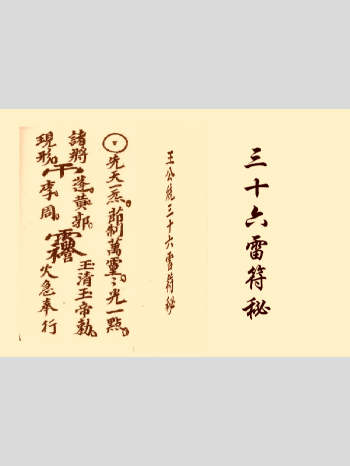 三十六雷符秘
王公統三十六雷符秘
先天一炁。節制萬靈。靈光一點。
玉清玉帝勅。
諸將
蓬黄郭。
火急奉行
現形。
李周。